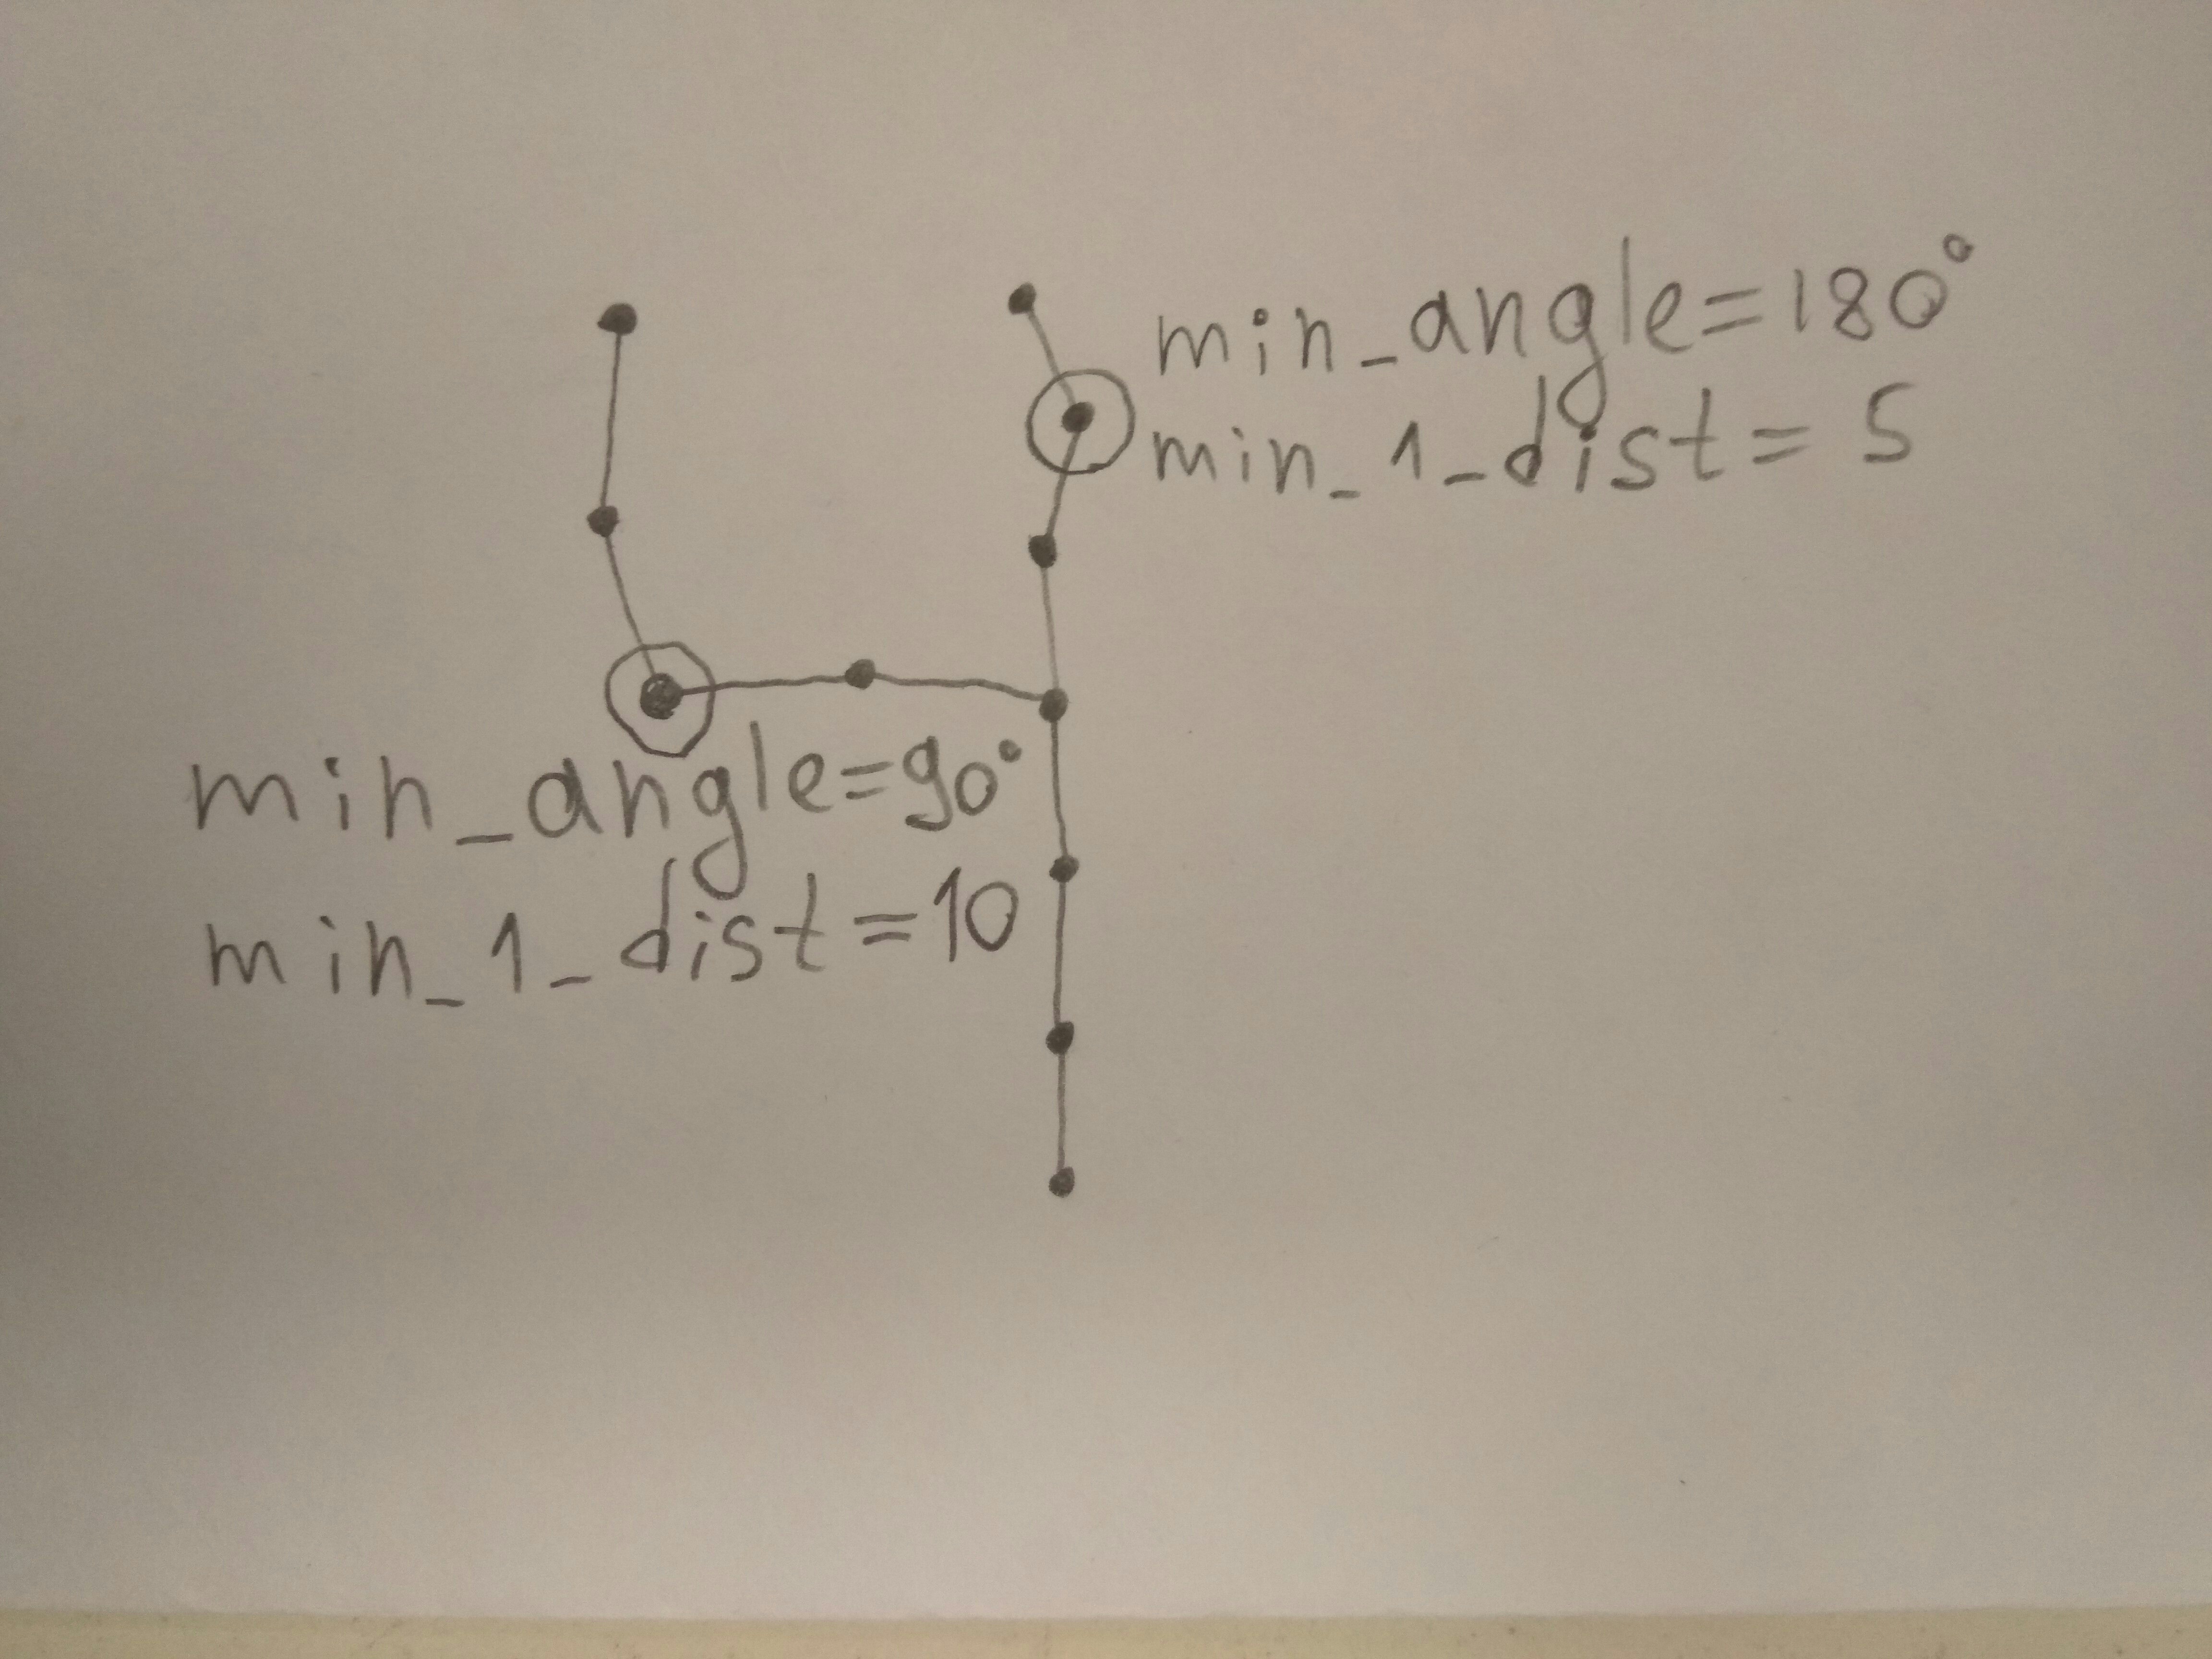 min_angle=180°
min_1_dist=5
min_angle=90°
min_1_dist=10